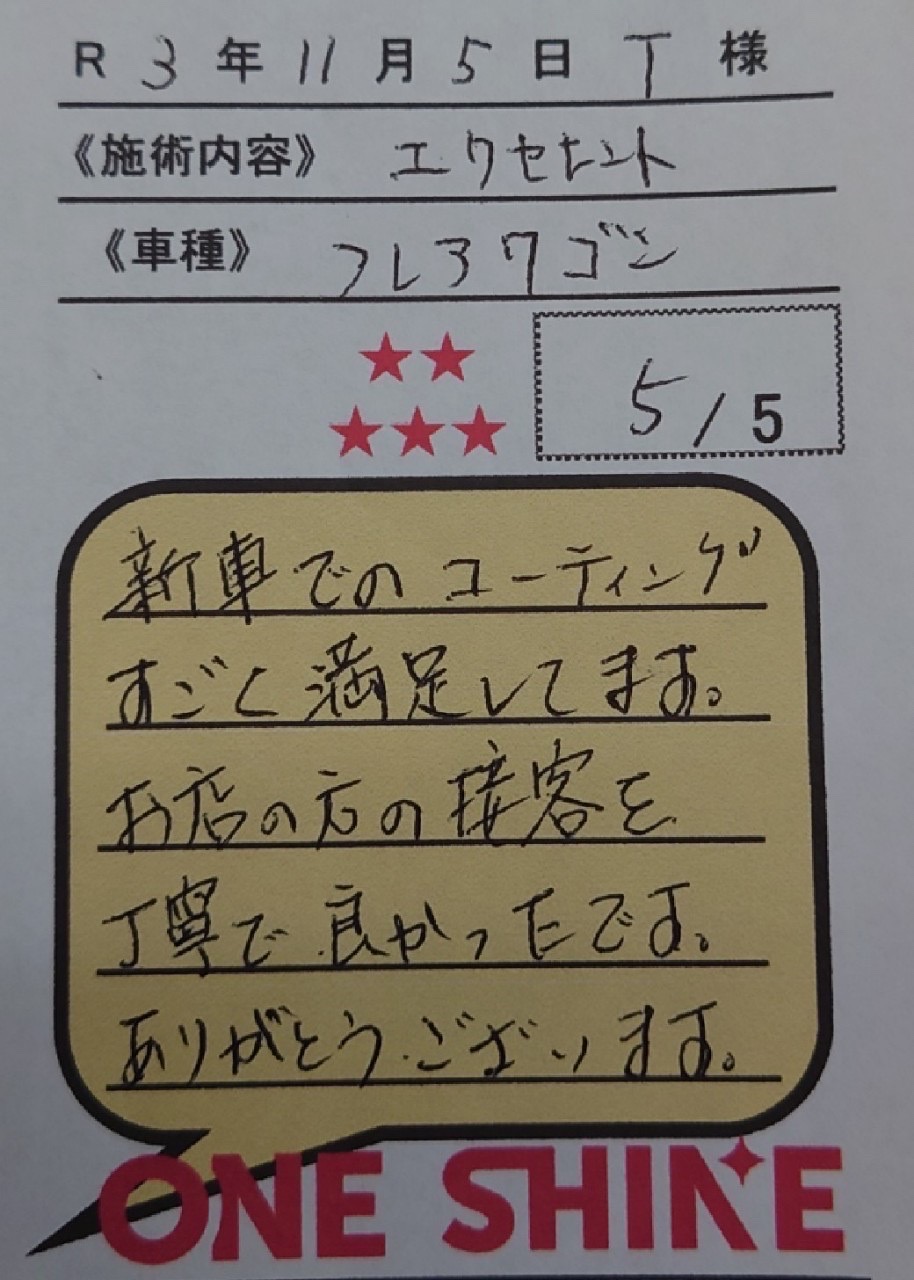 R 3 年 11 月 5 日 T 様
《施術内容》 エクセレント
《車種》 フレアワゴン
★★
★★★
5 / 5
新車でのコーティング
すごく満足してます。
お店の方の接客を
丁寧で良かったです。
ありがとうございます。
ONE SHINE